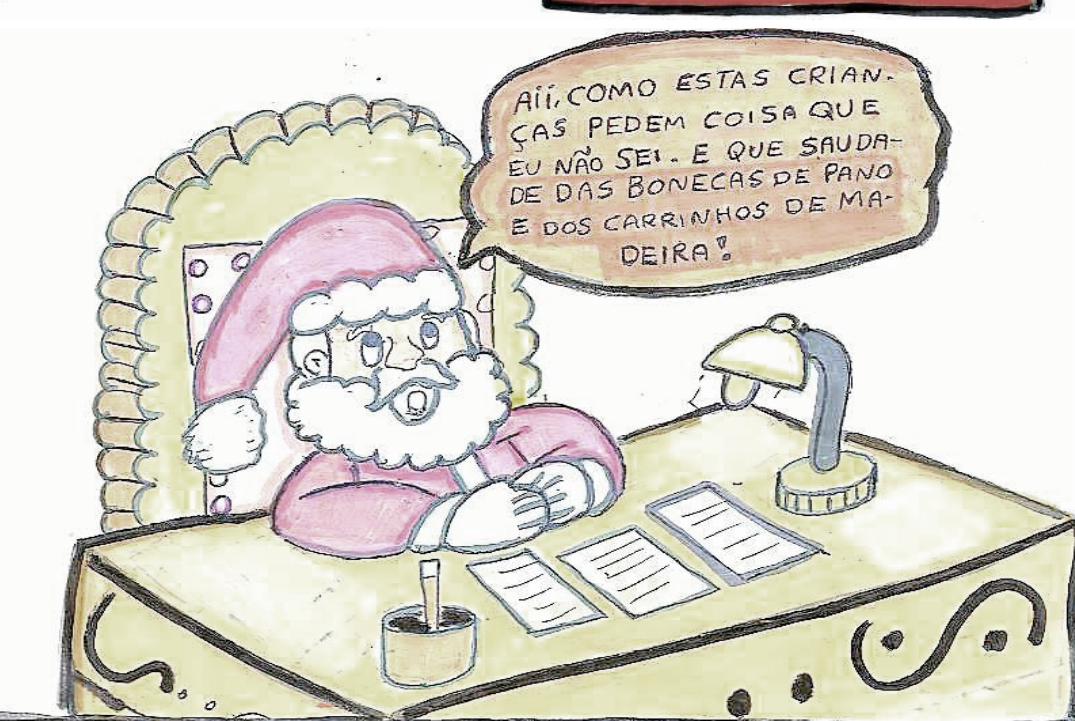 Aíí, COMO ESTAS CRIAN-
ÇAS PEDEM COISA QUE
EU NÃO SEI. E QUE SAUDA-
DE DAS BONECAS DE PANO
E DOS CARRINHOS DE MA-
DEIRA!